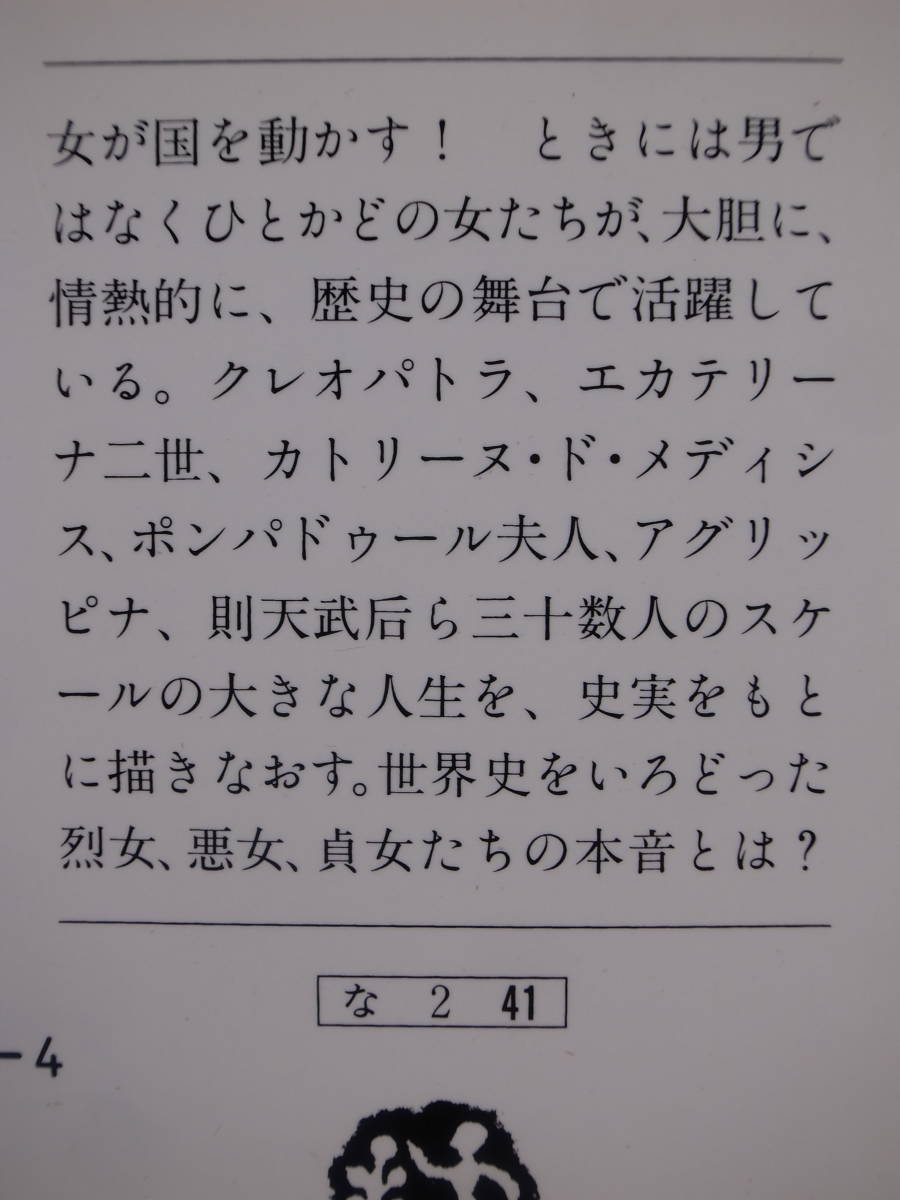 女が国を動かす！　ときには男で
はなくひとかどの女たちが、大胆に、
情熱的に、歴史の舞台で活躍して
いる。クレオパトラ、エカテリー
ナ二世、カトリーヌ・ド・メディシ
ス、ポンパドゥール夫人、アグリッ
ピナ、則天武后ら三十数人のスケ
ールの大きな人生を、史実をもと
に描きなおす。世界史をいろどった
烈女、悪女、貞女たちの本音とは？
な 2 41
-4